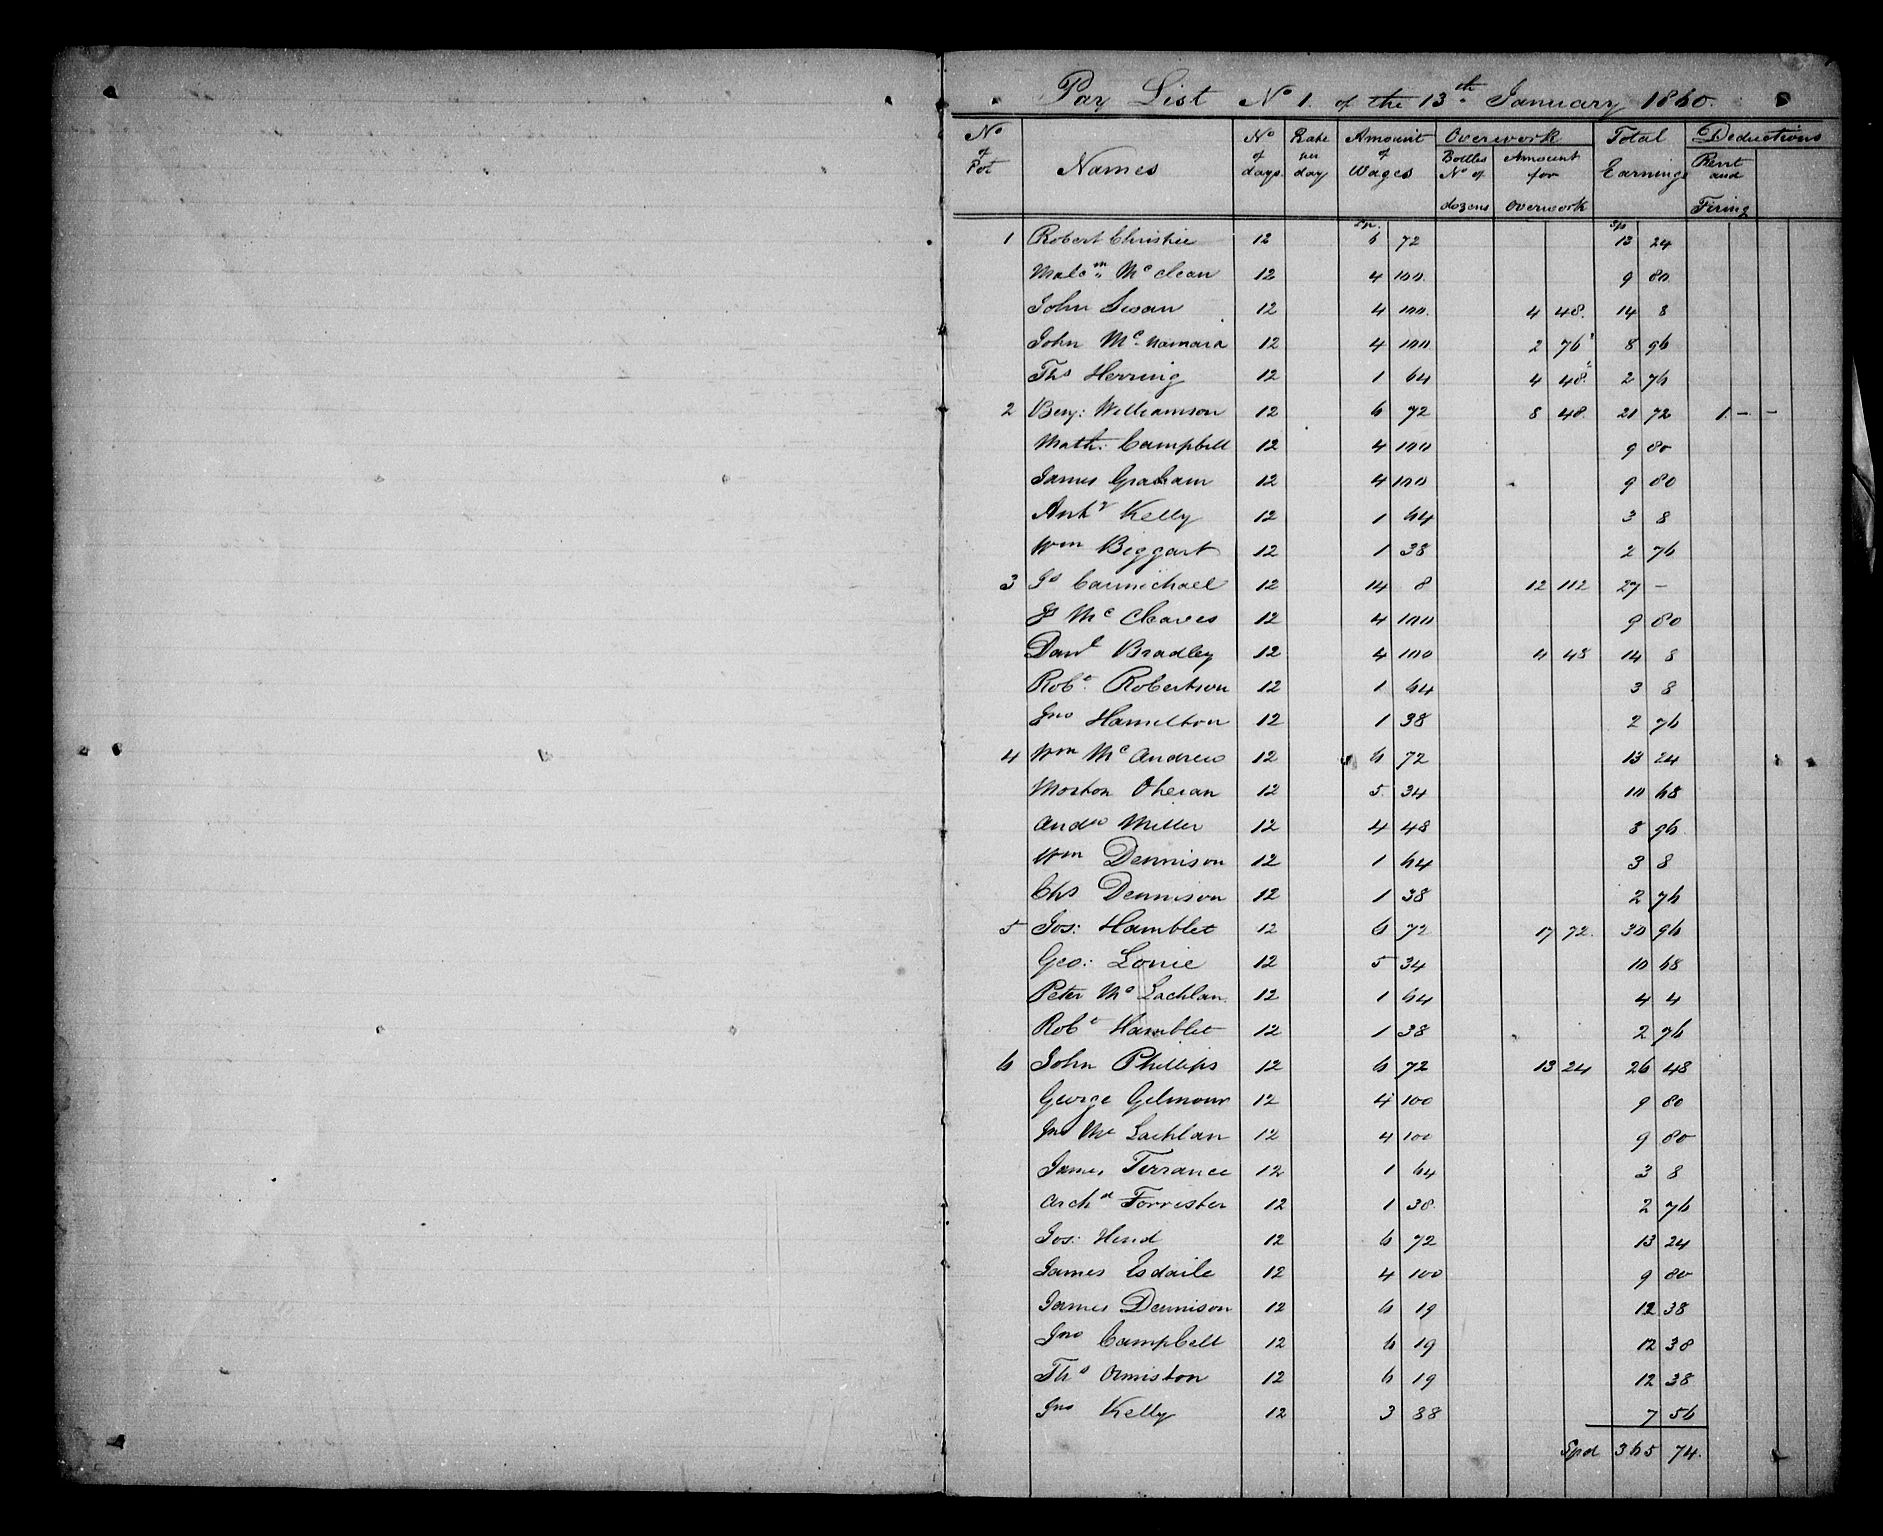 Pay List No 1. of the 13th. January 1860.
No of Pot | Names | No of days | Rate per day | Amount of Wages | Overwork | Total Earnings | Deductions
Bottles No of dozens | Amount for Overwork | Rent and Firing
Sp. | Sp
1 Robert Christie 12 6 72 13 24
Malcm Mc Clean 12 4 100 9 80
John Swan 12 4 100 4 48 14 8
John Mc Namara 12 4 100 2 76 8 96
Ths Herring 12 1 64 4 48 2 76
2 Benj: Williamson 12 6 72 8 48 21 72 1 - -
Math: Campbell 12 4 100 9 80
James Graham 12 4 100 9 80
Anty Kelly 12 1 64 3 8
Wm Biggart 12 1 38 2 76
3 Js Carmichael 12 14 8 12 112 27 -
Js Mc Cleaves 12 4 100 9 80
Danl Bradley 12 4 100 4 48 14 8
Robt. Robertson 12 1 64 3 8
Jno Hamelton 12 1 38 2 76
4 Wm Mc Andrew 12 6 72 13 24
Morton Oheran 12 5 34 10 68
Andw Miller 12 4 48 8 96
Wm Dennison 12 1 64 3 8
Chs Dennison 12 1 38 2 76
5 Jos: Hamblet 12 6 72 17 72 30 96
Geo: Lonie 12 5 34 10 68
Peter Mc Lachlan 12 1 64 4 4
Robt Hamblet 12 1 38 2 76
6 John Phillips 12 6 72 13 24 26 48
George Gilmour 12 4 100 9 80
Jno Mc Lachlan 12 4 100 9 80
James Terrance 12 1 64 3 8
Archd Forrester 12 1 38 2 76
Jos: Hend 12 6 72 13 24
James Esdaile 12 4 100 9 80
James Dennison 12 6 19 12 38
Jno Campbell 12 6 19 12 38
Ths Ormiston 12 6 19 12 38
Jno Kelly 12 3 88 7 56
Spd 365 74.